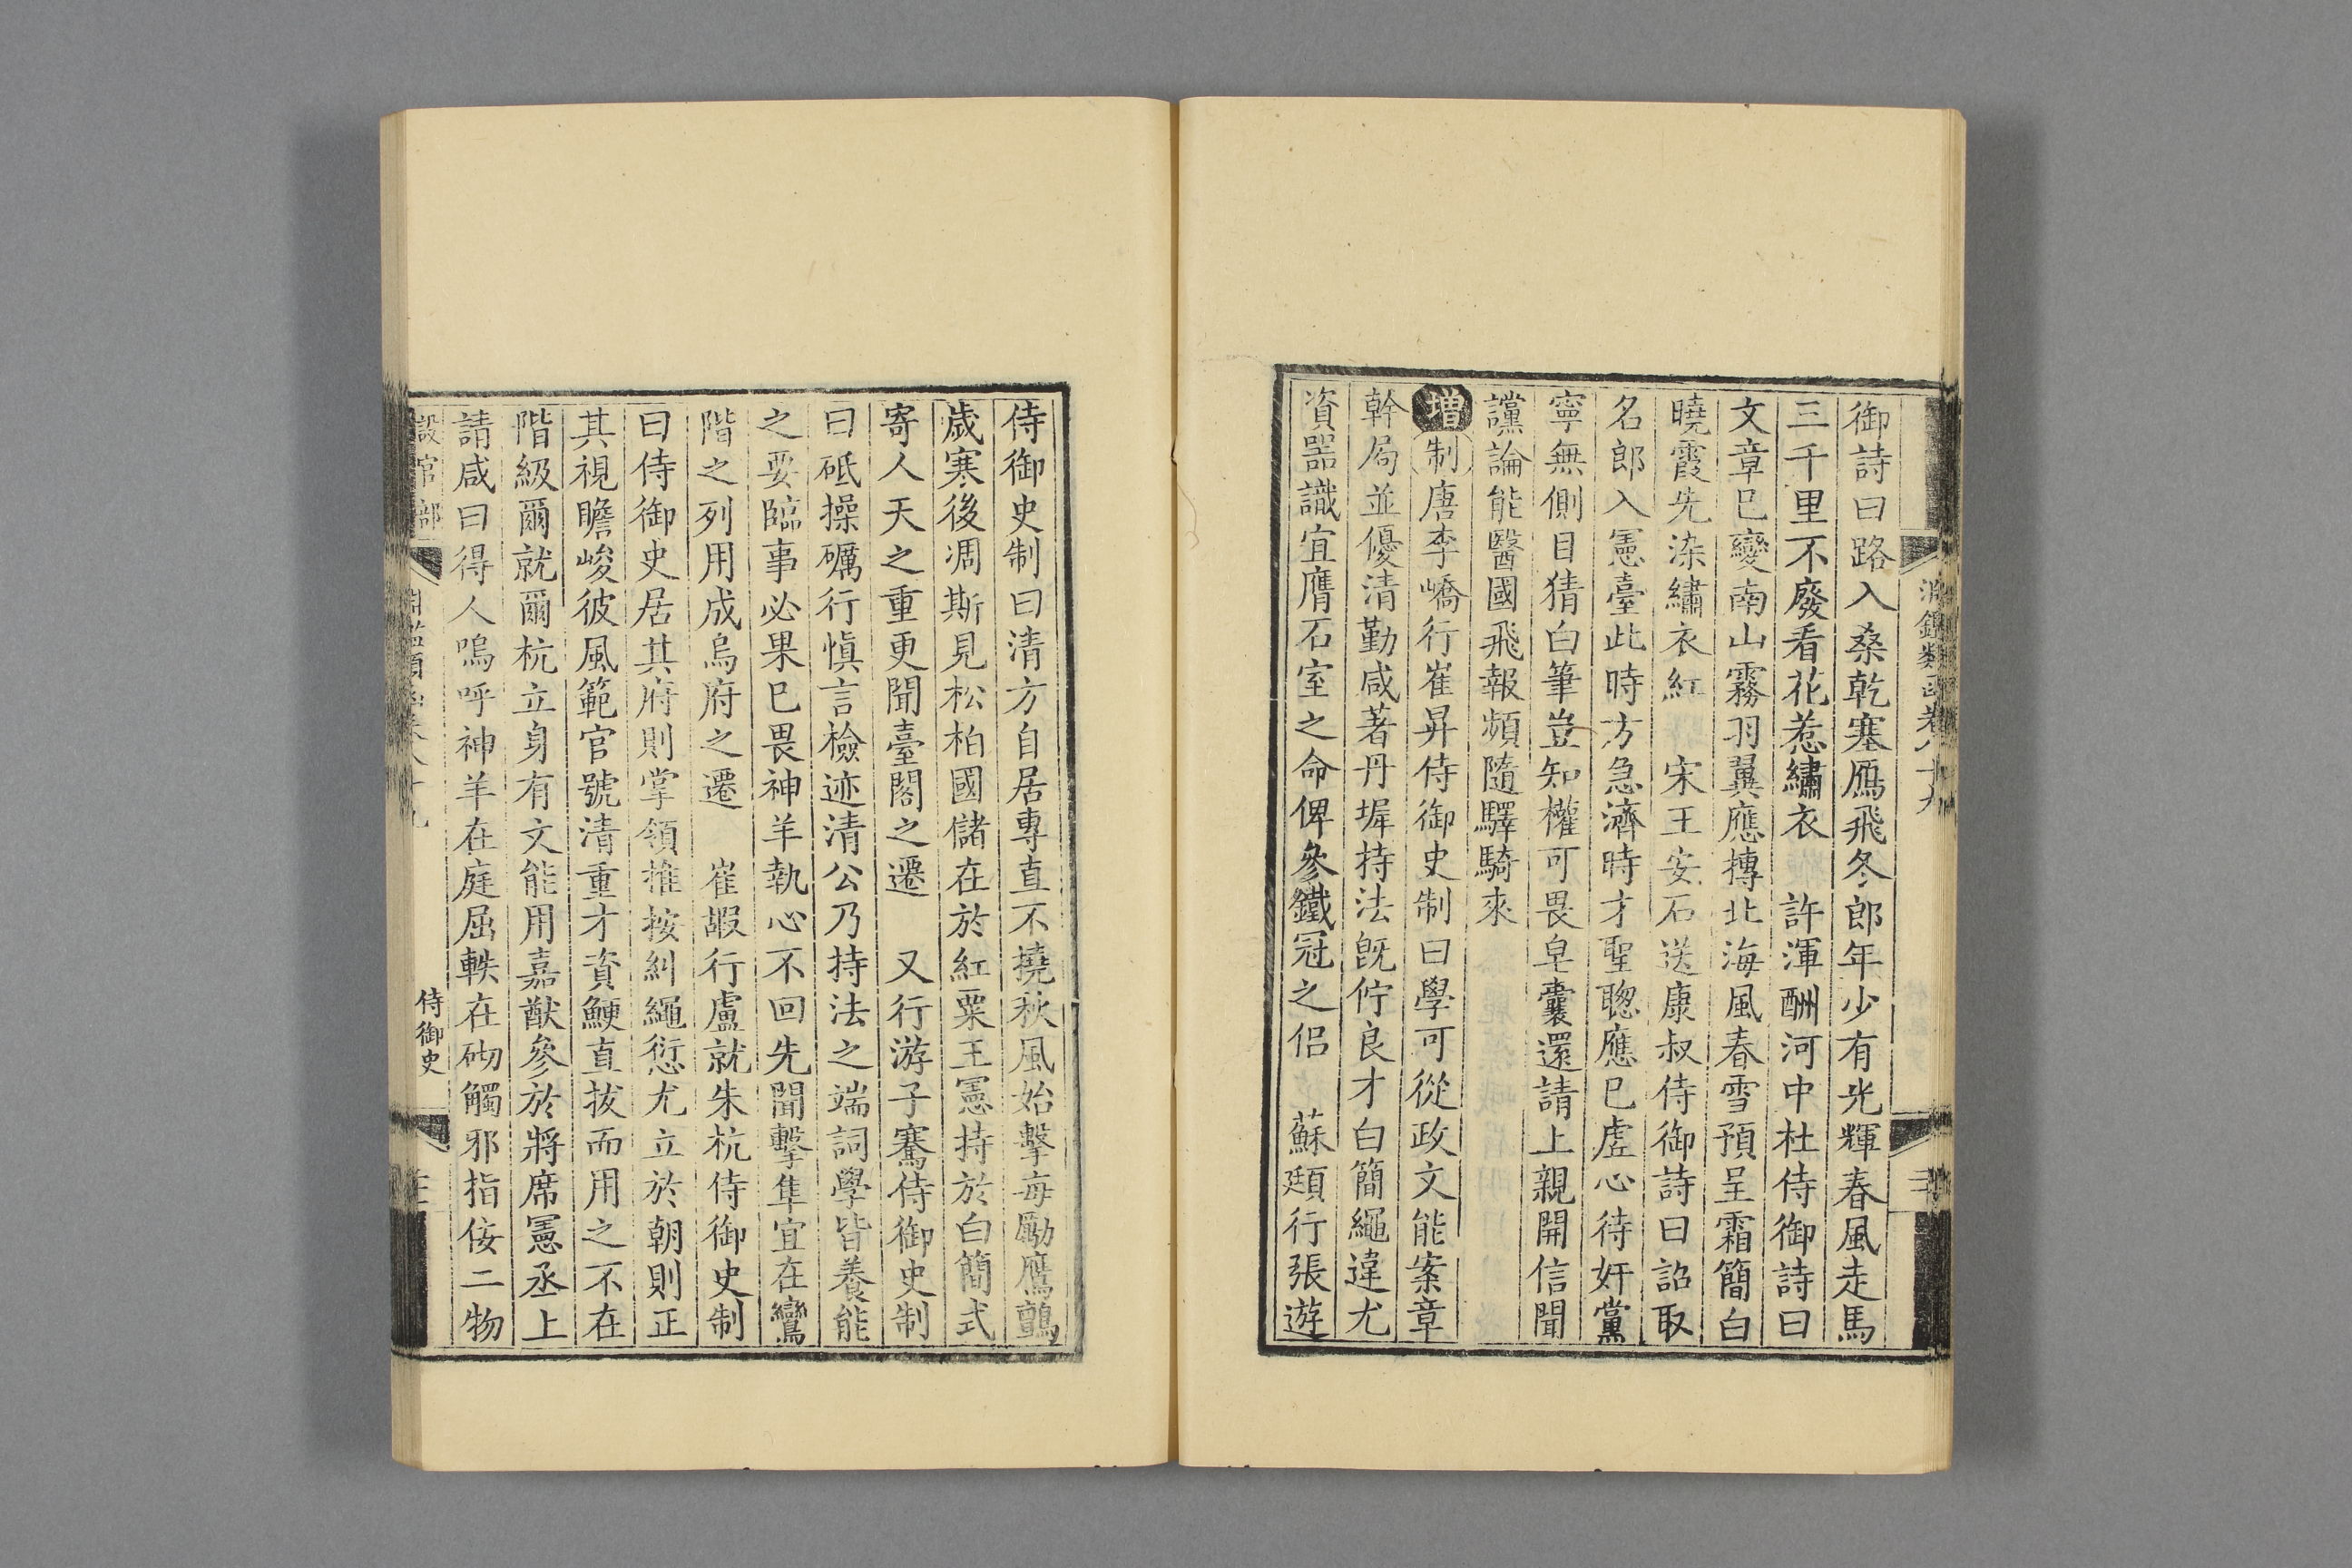 御詩曰路入桑乾塞雁飛冬郎年少有光輝春風走馬
三千里不廢看花惹繡衣　許渾酬河中杜侍御詩曰
文章已變南山霧羽翼應摶北海風春雪預呈霜簡白
曉霞先染繡衣紅　宋王安石送康叔侍御詩曰詔取
名郎入憲臺此時方急濟時才聖聰應已虛心待奸黨
寧無側目猜白筆豈知權可畏皂囊還請上親開信聞
讜論能醫國飛報頻隨驛騎來
增制唐李嶠行崔昇侍御史制曰學可從政文能案章
幹局並優清勤咸著丹墀持法旣佇良才白簡繩違尤
資器識宜膺石室之命俾參鐵冠之侶　蘇頲行張遊
侍御史制曰清方自居專直不撓秋風始擊每勵鷹鸇
歲寒後凋斯見松柏國儲在於紅粟王憲持於白簡式
寄人天之重更聞臺閣之遷　又行游子騫侍御史制
曰砥操礪行愼言檢迹清公乃持法之端詞學皆養能
之要臨事必果已畏神羊執心不回先聞擊隼宜在鴛
階之列用成烏府之遷　崔嘏行盧就朱杭侍御史制
曰侍御史居其府則掌領推按糾繩愆尤立於朝則正
其視瞻峻彼風範官號清重才資鯁直拔而用之不在
階級爾就爾杭立身有文能用嘉猷參於將席憲丞上
請咸曰得人嗚呼神羊在庭屈軼在砌觸邪指佞二物
設官部
淵鑑類函卷八十九
侍御史